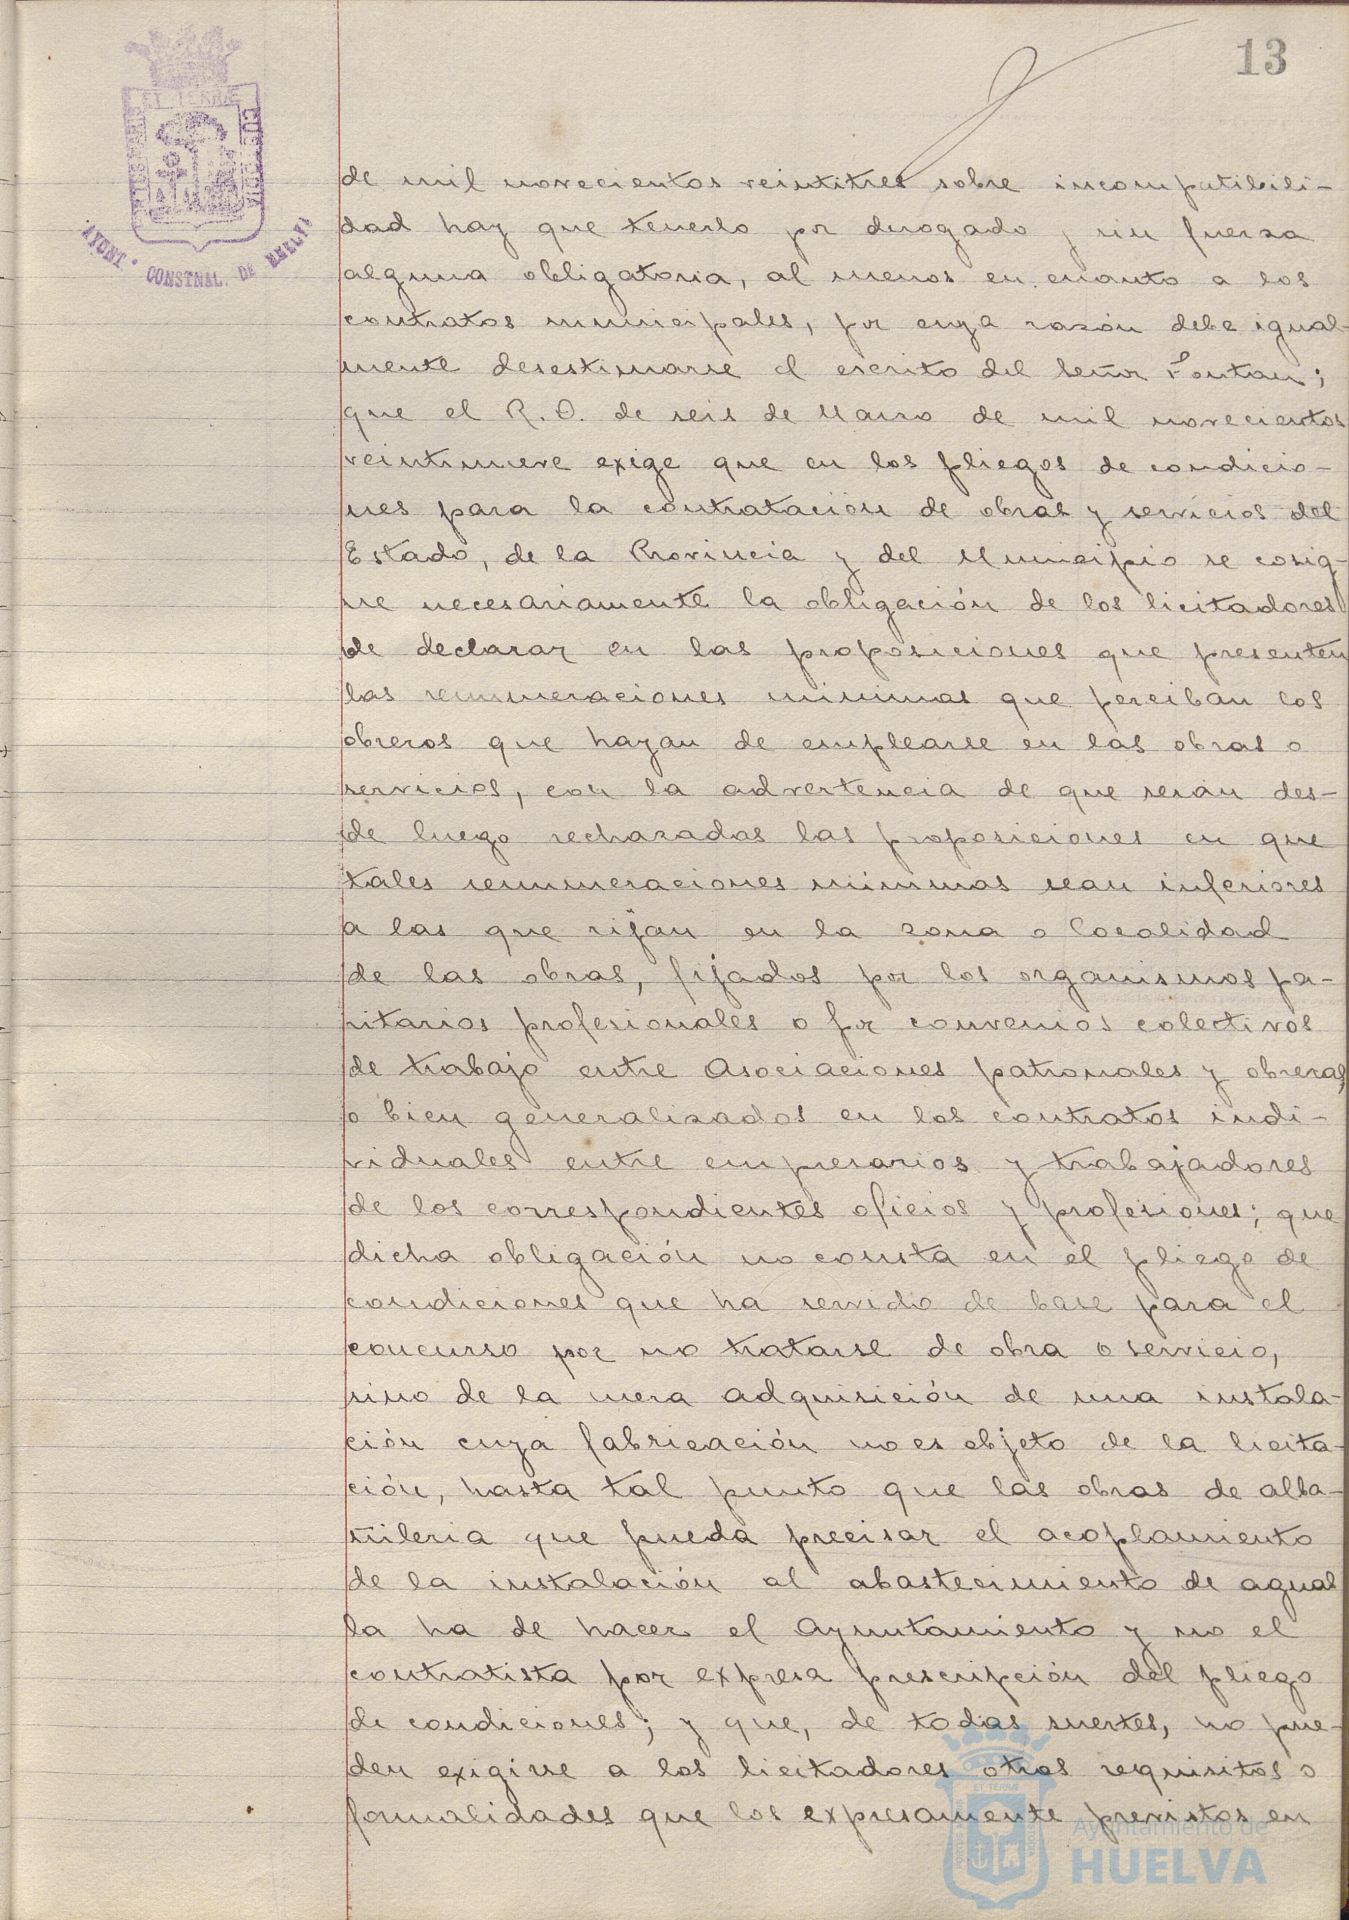 13
ET TERRÆ
CUSTODIA
AYUNT. CONSTNAL. DE HUELVA
de mil novecientos veintitres sobre incompatibili-
dad hay que tenerlo por derogado y sin fuerza
alguna obligatoria, al menos en cuanto a los
contratos municipales, por cuya razón debe igual-
mente desestimarse el escrito del Señor Fontan;
que el R. D. de seis de Marzo de mil novecientos
veintinueve exige que en los pliegos de condicio-
nes para la contratación de obras y servicios del
Estado, de la Provincia y del Municipio se cosig-
ne necesariamente la obligación de los licitadores
de declarar en las proposiciones que presenten
las remuneraciones minimas que perciban los
obreros que hayan de emplearse en las obras o
servicios, con la advertencia de que seran des-
de luego rechazadas las proposiciones en que
tales remuneraciones minimas sean inferiores
a las que rijan en la zona o localidad
de las obras, fijados por los organismos pa-
ritarios profesionales o por convenios colectivos
de trabajo entre Asociaciones patronales y obreras,
o bien generalizados en los contratos indi-
viduales entre empresarios y trabajadores
de los correspondientes oficios y profesiones; que
dicha obligación no consta en el pliego de
condiciones que ha servido de base para el
concurso por no tratarse de obra o servicio,
sino de la mera adquisición de una instala-
ción cuya fabricación no es objeto de la licita-
ción, hasta tal punto que las obras de alba-
ñileria que pueda precisar el acoplamiento
de la instalación al abastecimiento de aguas
la ha de hacer el Ayuntamiento y no el
contratista por expresa prescripción del pliego
de condiciones; y que, de todas suertes, no pue-
den exigirse a los licitadores otros requisitos o
formalidades que los expresamente previstos en
Ayuntamiento de
HUELVA